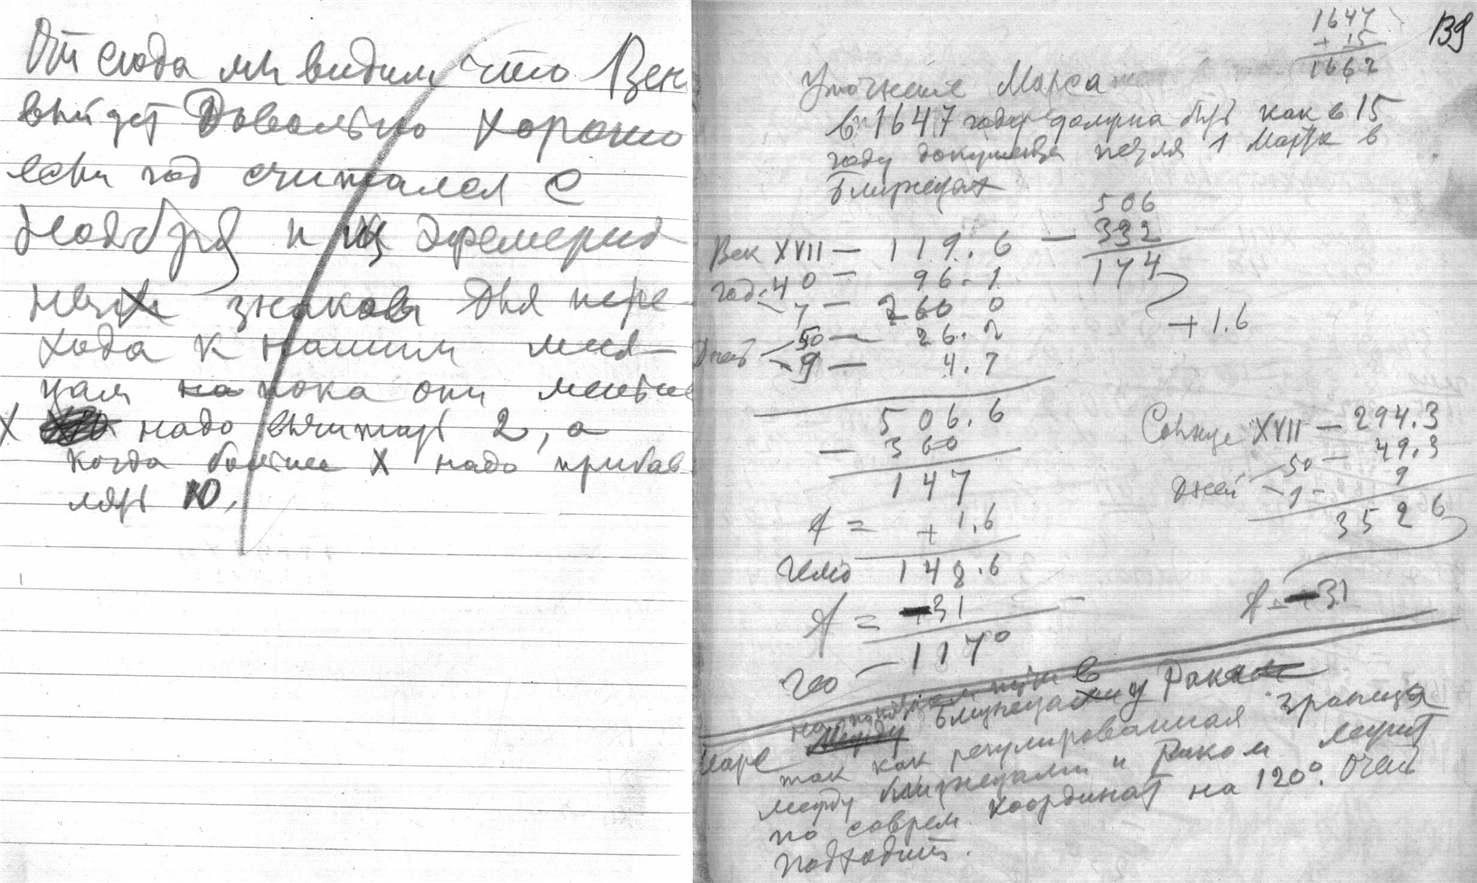 От сюда мы видим что Вен
выйдет Довольно хорошо
если год считался с
Ноября и из Эфемерид
знаков Для пере-
хода к нашим меся-
цам на пока они меньше
X надо вычитать 2, а
когда больше X надо прибав
лять 10.
1647
+ 15
1662
139
Уточнение Марса
в 1647 году должна быть как в 15
году документа после 1 Марта в
Близнецах
506
— 332
174
+ 1.6
Век XVII — 119.6
год 40 — 96.1
7 — 260 0
Дней 50 — 26.2
9 — 4.7
506.6
— 360
147
A = + 1.6
гелио 148.6
A = —31
гео — 117°
Солнце XVII — 294.3
Дней 50 — 49.3
9 — 9
352 6
A = —31
в
Марс Между Близнецами и Раком
так как регулированная граница
между Близнецами и Раком лежит
по соврем. координат на 120°. Очень
подходит.